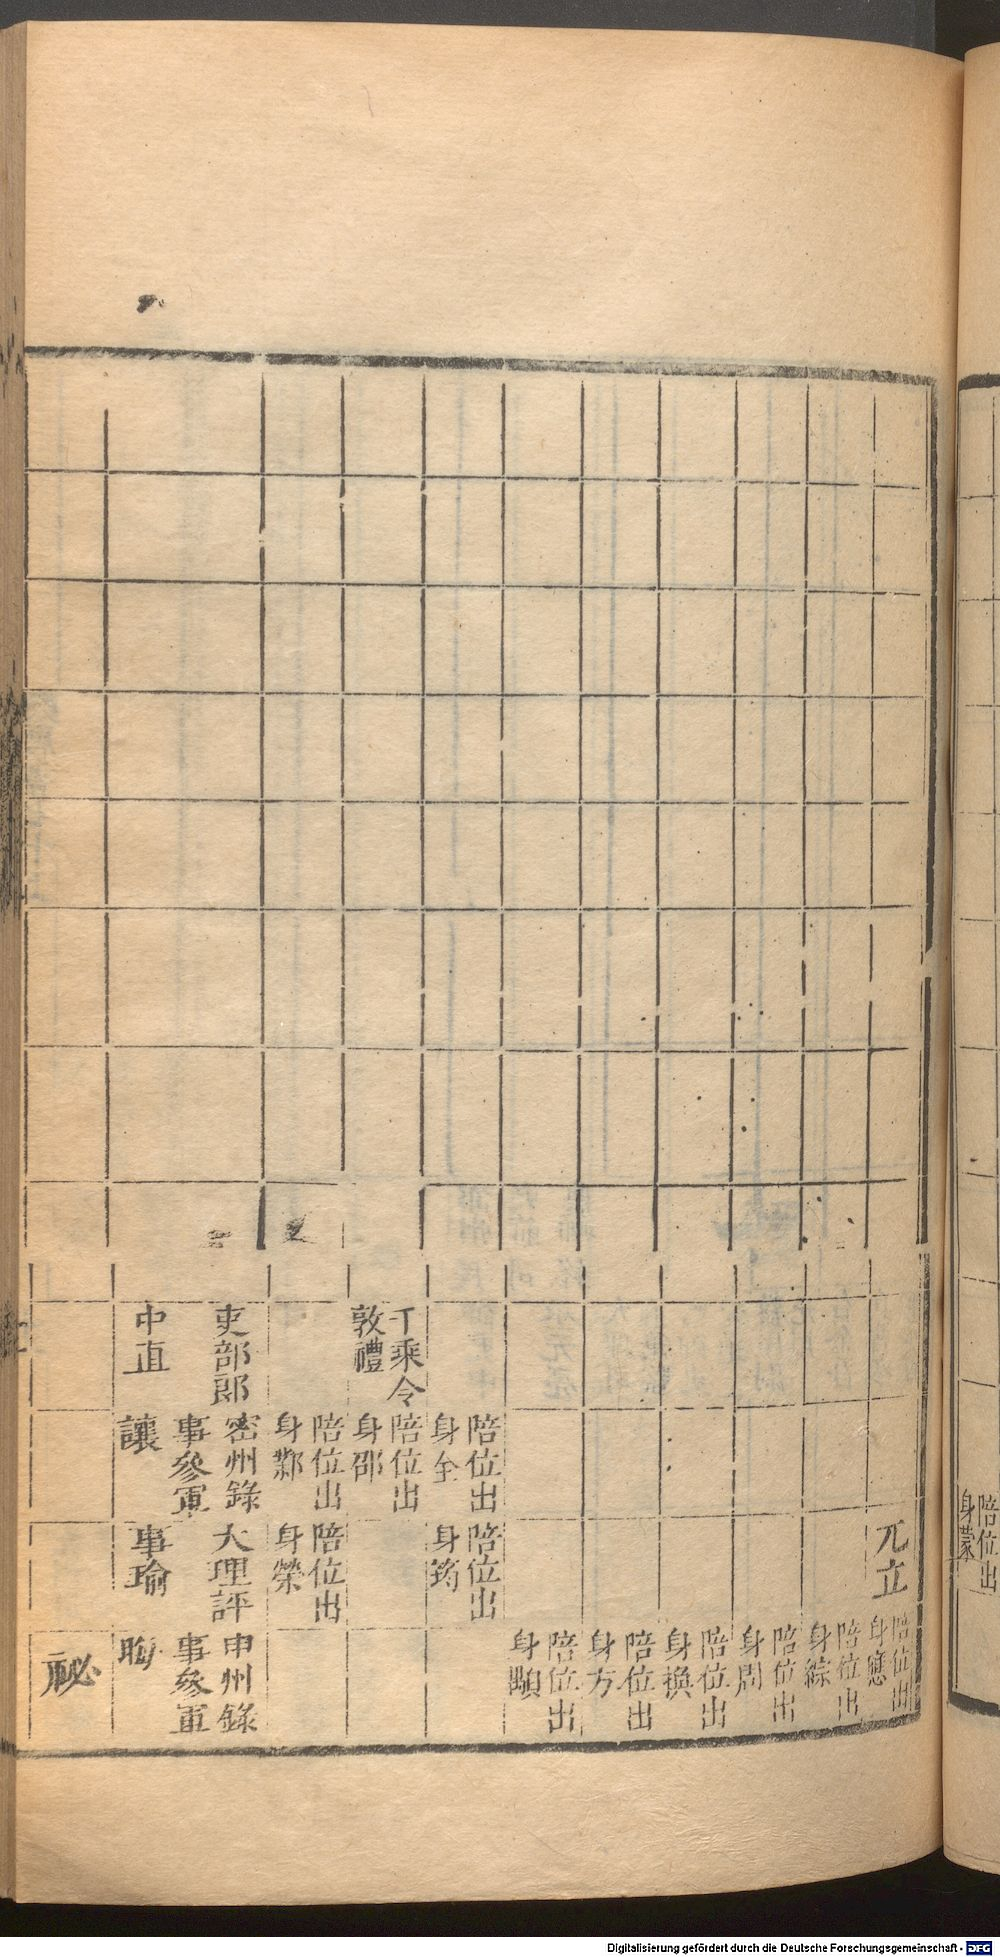 陪位出
身蒙
兀立
陪位出
身應
陪位出
身綜
陪位出
身周
陪位出
身換
陪位出
身方
陪位出
身顯
陪位出
身全
陪位出
身筠
千乘令
敦禮
陪位出
身邵
陪位出
身鄴
陪位出
身榮
吏部郎
中直
密州錄
事參軍
讓
大理評
事瑜
申州錄
事參軍
朐
祕
Digitalisierung gefördert durch die Deutsche Forschungsgemeinschaft - DFG